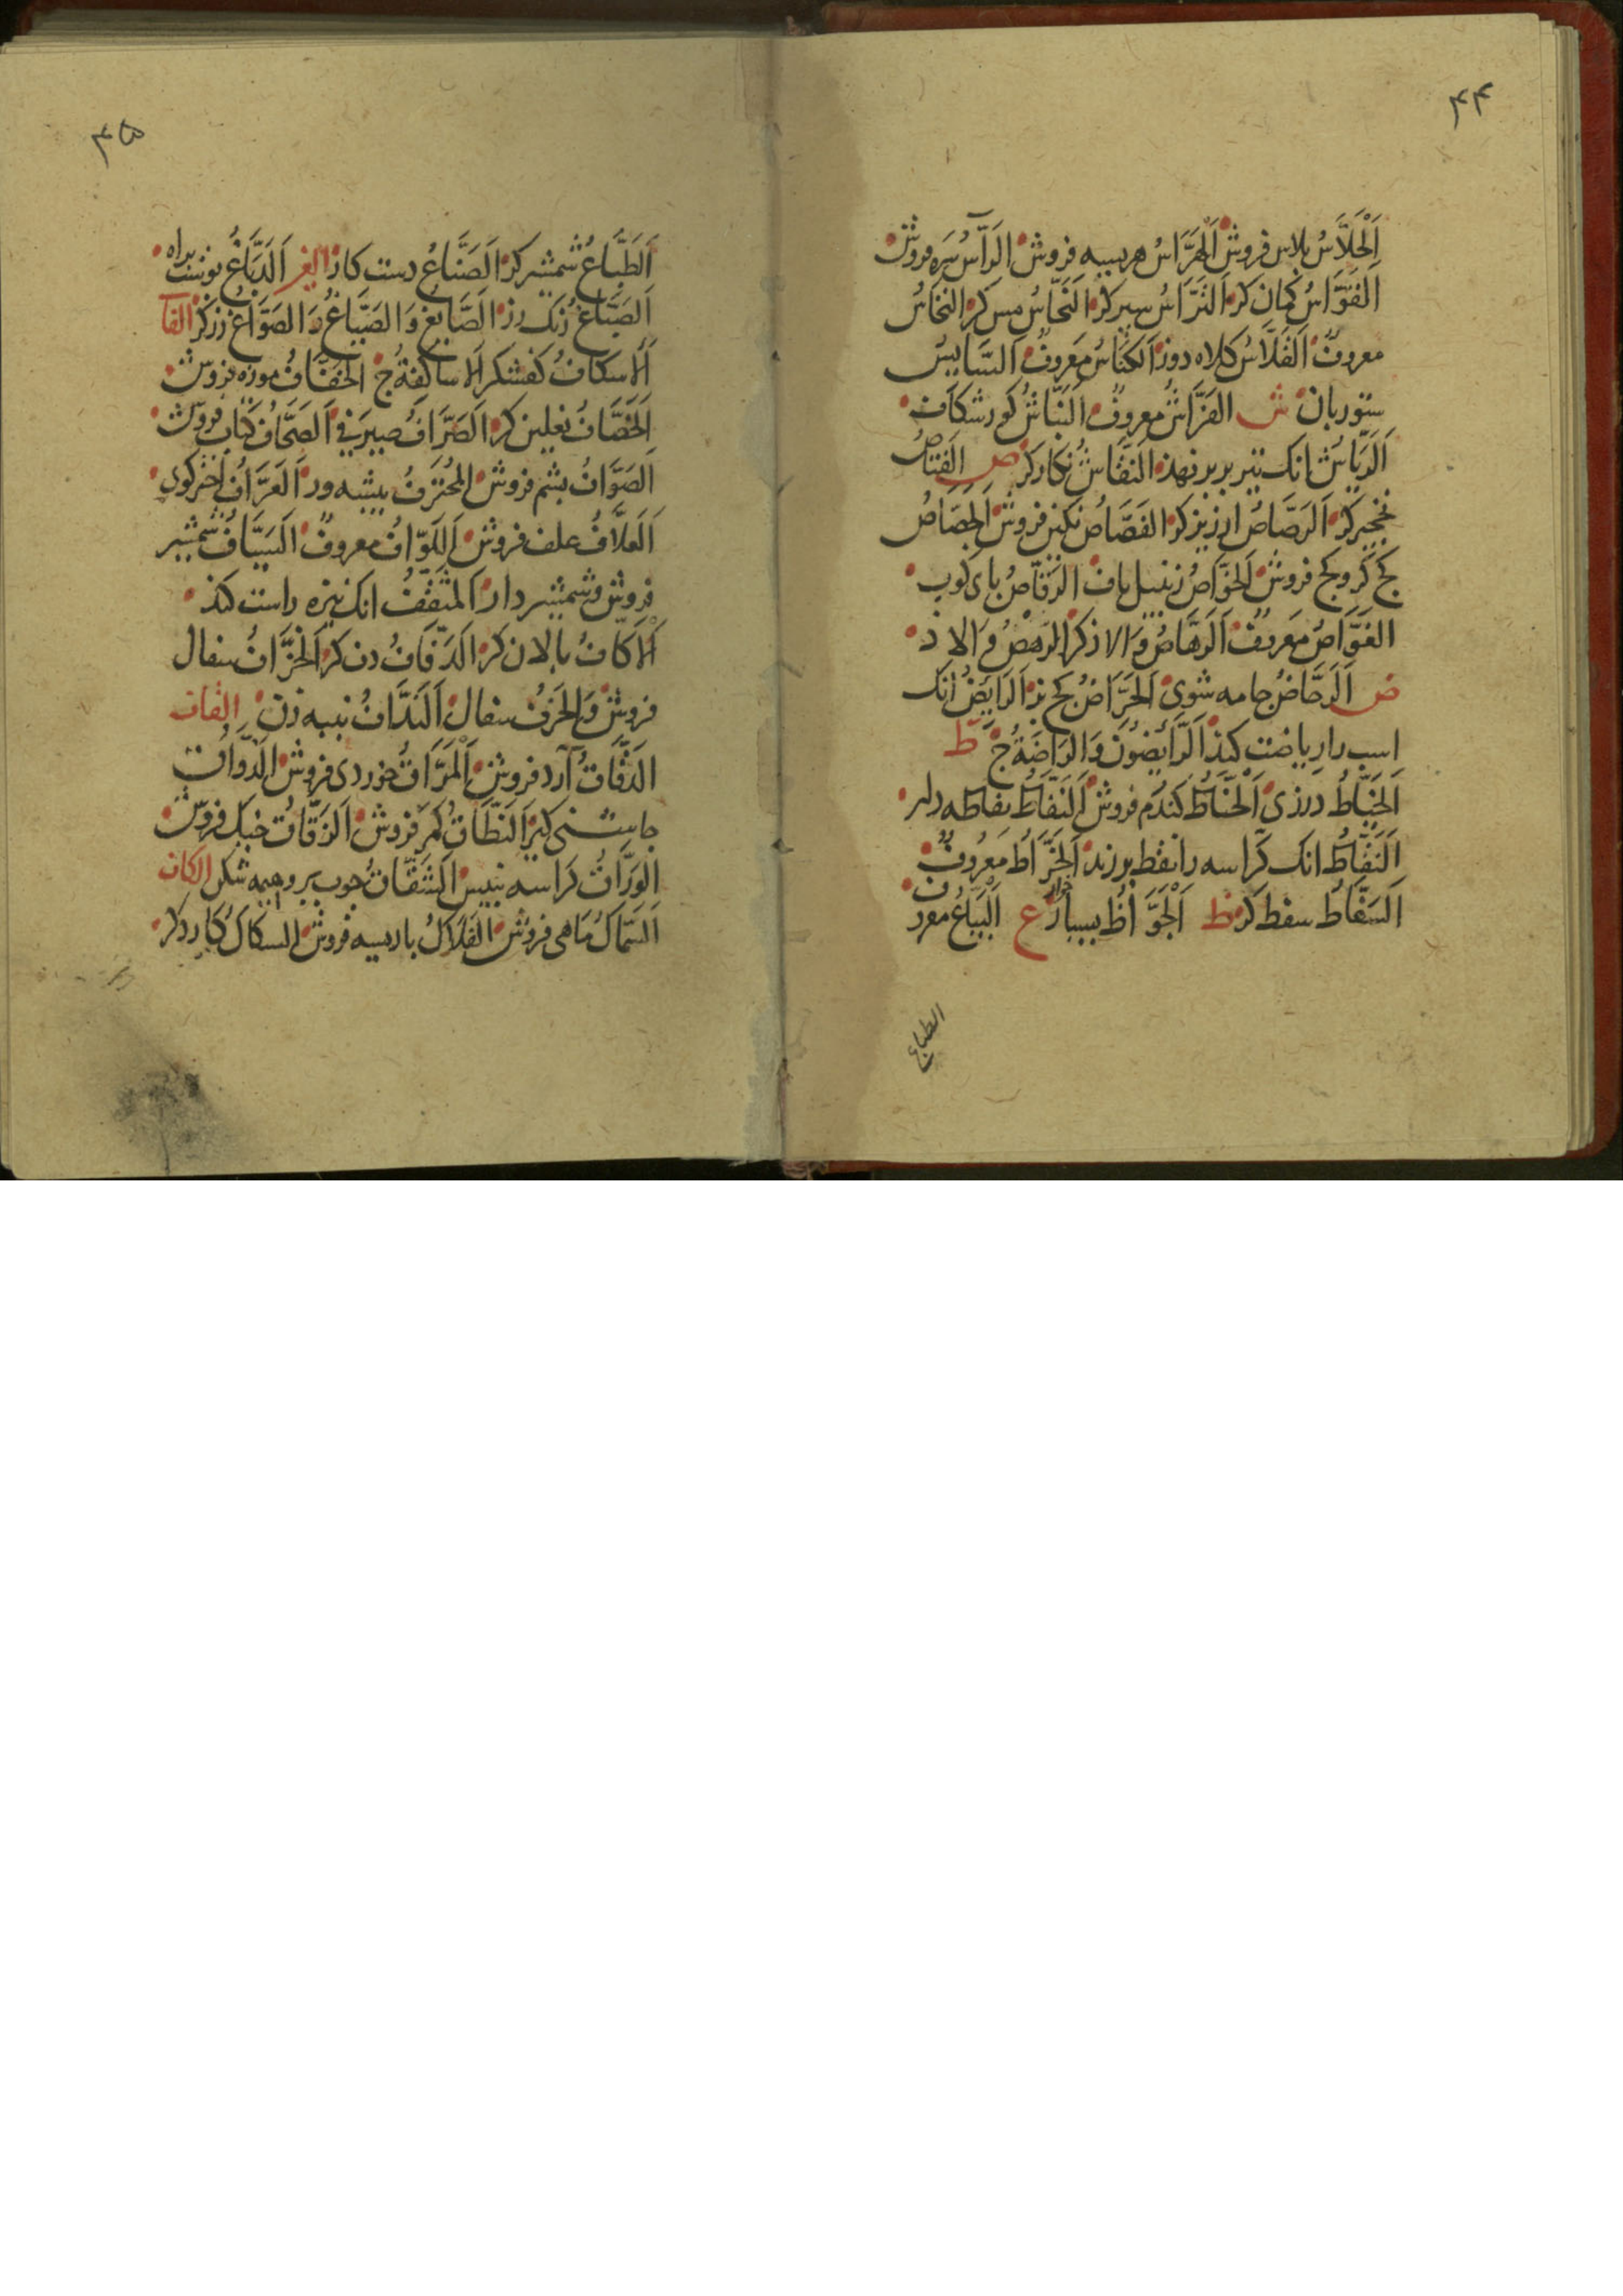 ۴۴
اَلْحَلَّاسُ پلاس فروش اَلْهَرَّاسُ هریسه فروش الرَآّسُ سره فروش
اَلْقَوَّاسُ کمان کر اَلتَرَّاسُ سپر کر اَلنَحَّاسُ مس کر النخاسُ
معروفٌ اَلقَلَّاسُ کلاه دوز اَلکنَّاسُ مَعروفٌ السَّایسُ
ستوربان ش الفَرَّاشُ معروفٌ اَلنَبَّاشُ کورشکاف
اَلرَیَّاشُ انک تیر بر پر نهذ النَقَّاشُ نکارکر ص
کر اَلرَصَّاصُ ارزیز کر الفَصَّاصُ نکین فروش اَلجَصَاصُ
کج کر و کج فروش اَلخَوَّاصُ زنبیل باف الرَقَّاصُ بای کوب
الغَوَّاصُ مَعروفٌ اَلرَهَّاصُ والاذ کر الرَهصُ والاذ
ض اَلرَحَّاضُ جامه شوی اَلحَرَّاضُ کج پز اَلرَایضُ انک
اسب را ریاضت کند اَلرَّائِضُونَ وَالرَاضَةُ ج ط
اَلخَیَّاطُ درزی اَلْحَنَّاطُ کندم فروش اَلنَفَّاطُ نفاطه دار
اَلنَقَّاطُ انک کراسه را نقط بر زند اَلخَرَّاطُ مَعرُوفٌ
اَلسَقَّاطُ سقط کر ظ اَلْجَوَّاظُ بسیار خوار ع اَلْبَیَّاعُ معروف
الطباع
۴۵
اَلطَبَّاعُ شمشیرکر اَلصَنَّاعُ دست کار الغین اَلدَبَّاغُ پوست پیراه
اَلصَبَّاغُ رنک رز اَلصَّایغُ وَالصَیَّاغُ وَالصَوَّاغُ زرکر الفآ
اَلْاسکافُ کفشکر اَلاساکفَةُ ج الخَفَّافُ موزه فروش
اَلخَصَّافُ نعلین کر اَلصَرَّافُ صیرفی اَلصَحَّافُ کتاب فروش
اَلصَوَّافُ پشم فروش المُحْتَرفُ پیشه ور اَلعَرَّافُ اخترکوی
اَلعَلَّافُ علف فروش معروفٌ اَلسَیَّافُ شمشیر
فروش و شمشیر دار اَلمثَقِّفُ انک نیزه راست کند
اَلْاکَّافُ پالان کر اَلدَفَّافُ دف کر اَلخَزَّافُ سفال
فروش وَالخَزَفُ سفال اَلنَدَّافُ پنبه زن القاف
الدَقَّاقُ آرد فروش اَلْمَرَّاقُ خوردی فروش اَلذَّواقُ
جاشنی کیر اَلنَطَّاقُ کمر فروش اَلزَقَّاقُ خیک فروش
الوَرَّاقُ کراسه نبیس اَلشَقَّاقُ جوب بر و هیمه شکن الکاف
اَلسَمَّاکُ مَاهی فروش الفَلَّاکُ باریسه فروش السکاکُ کاردکر